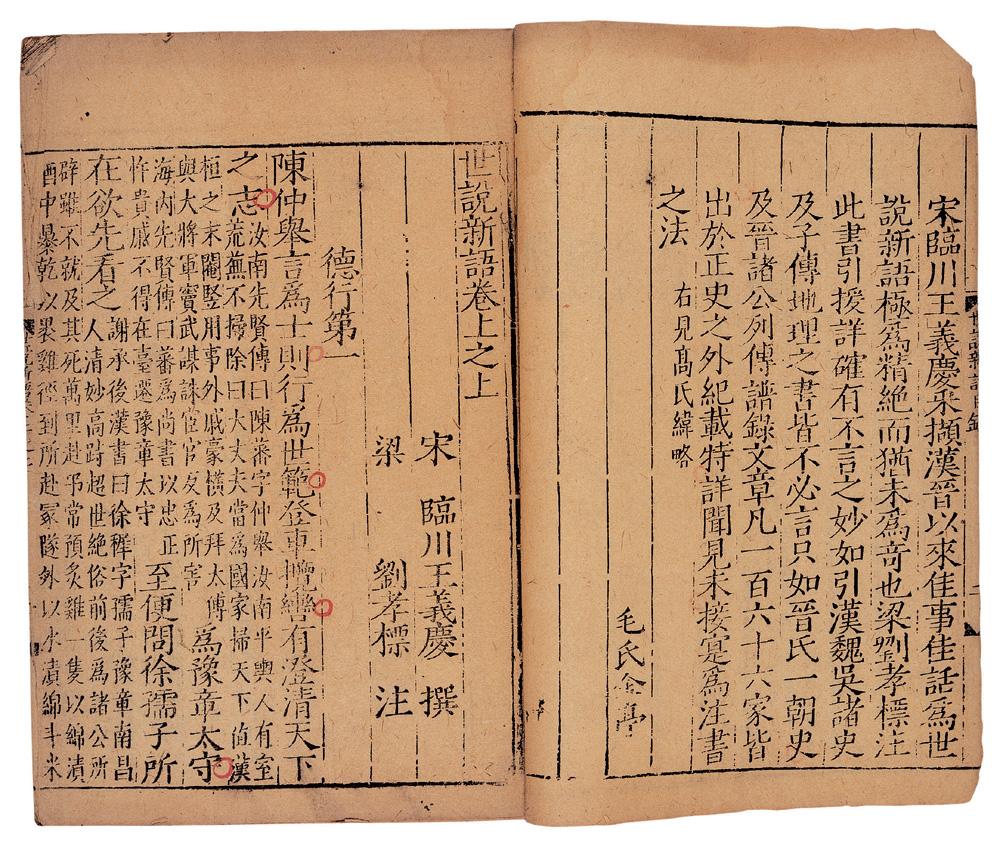 宋臨川王義慶采擷漢晉以來佳事佳話爲世
說新語極爲精絶而猶未爲竒也梁劉孝標注
此書引援詳確有不言之妙如引漢魏吳諸史
及子傳地理之書皆不必言只如晉氏一朝史
及晉諸公列傳譜錄文章凡一百六十六家皆
出於正史之外紀載特詳聞見未接寔爲注書
之法 右見髙氏緯略
毛氏金亭
世說新語目錄
世說新語卷上之上
宋 臨川王義慶 撰
梁 劉孝標 注
德行第一
陳仲舉言爲士則行爲世範登車攬轡有澄清天下
之志
汝南先賢傳曰陳蕃字仲舉汝南平輿人有室
荒蕪不掃除曰大丈夫當爲國家掃天下值漢
桓之末閹豎用事外戚豪橫及拜太傅
與大將軍竇武謀誅宦官反爲所害
爲豫章太守
海内先賢傳曰蕃爲尚書以忠正
忤貴戚不得在臺遷豫章太守
至便問徐孺子所
在欲先看之
謝承後漢書曰徐穉字孺子豫章南昌
人清妙高跱超世絶俗前後爲諸公所
辟雖不就及其死萬里赴弔常預炙雞一隻以綿漬
酒中暴乾以裹雞徑到所赴冢隧外以水漬綿斗米